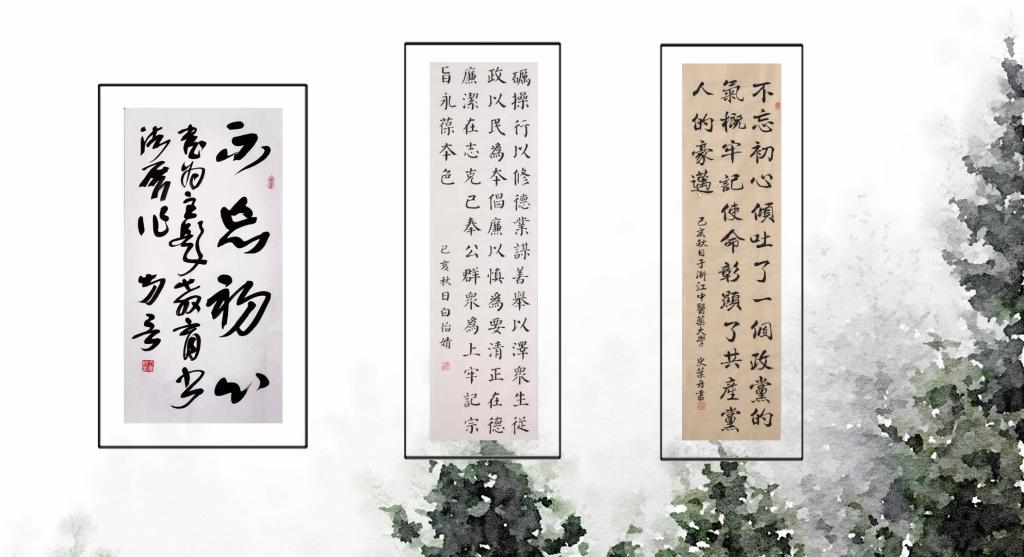 不忘初心
书为主题教育书
法展作
礪操行以修德業謀善舉以澤衆生從
政以民為夲倡廉以慎為要清正在德
廉潔在志克己奉公群衆為上牢記宗
旨永葆夲色
己亥秋日白怡婧
不忘初心傾吐了一個政黨的
氣概牢記使命彰顯了共產黨
人的豪邁
己亥秋日于浙江中醫藥大學